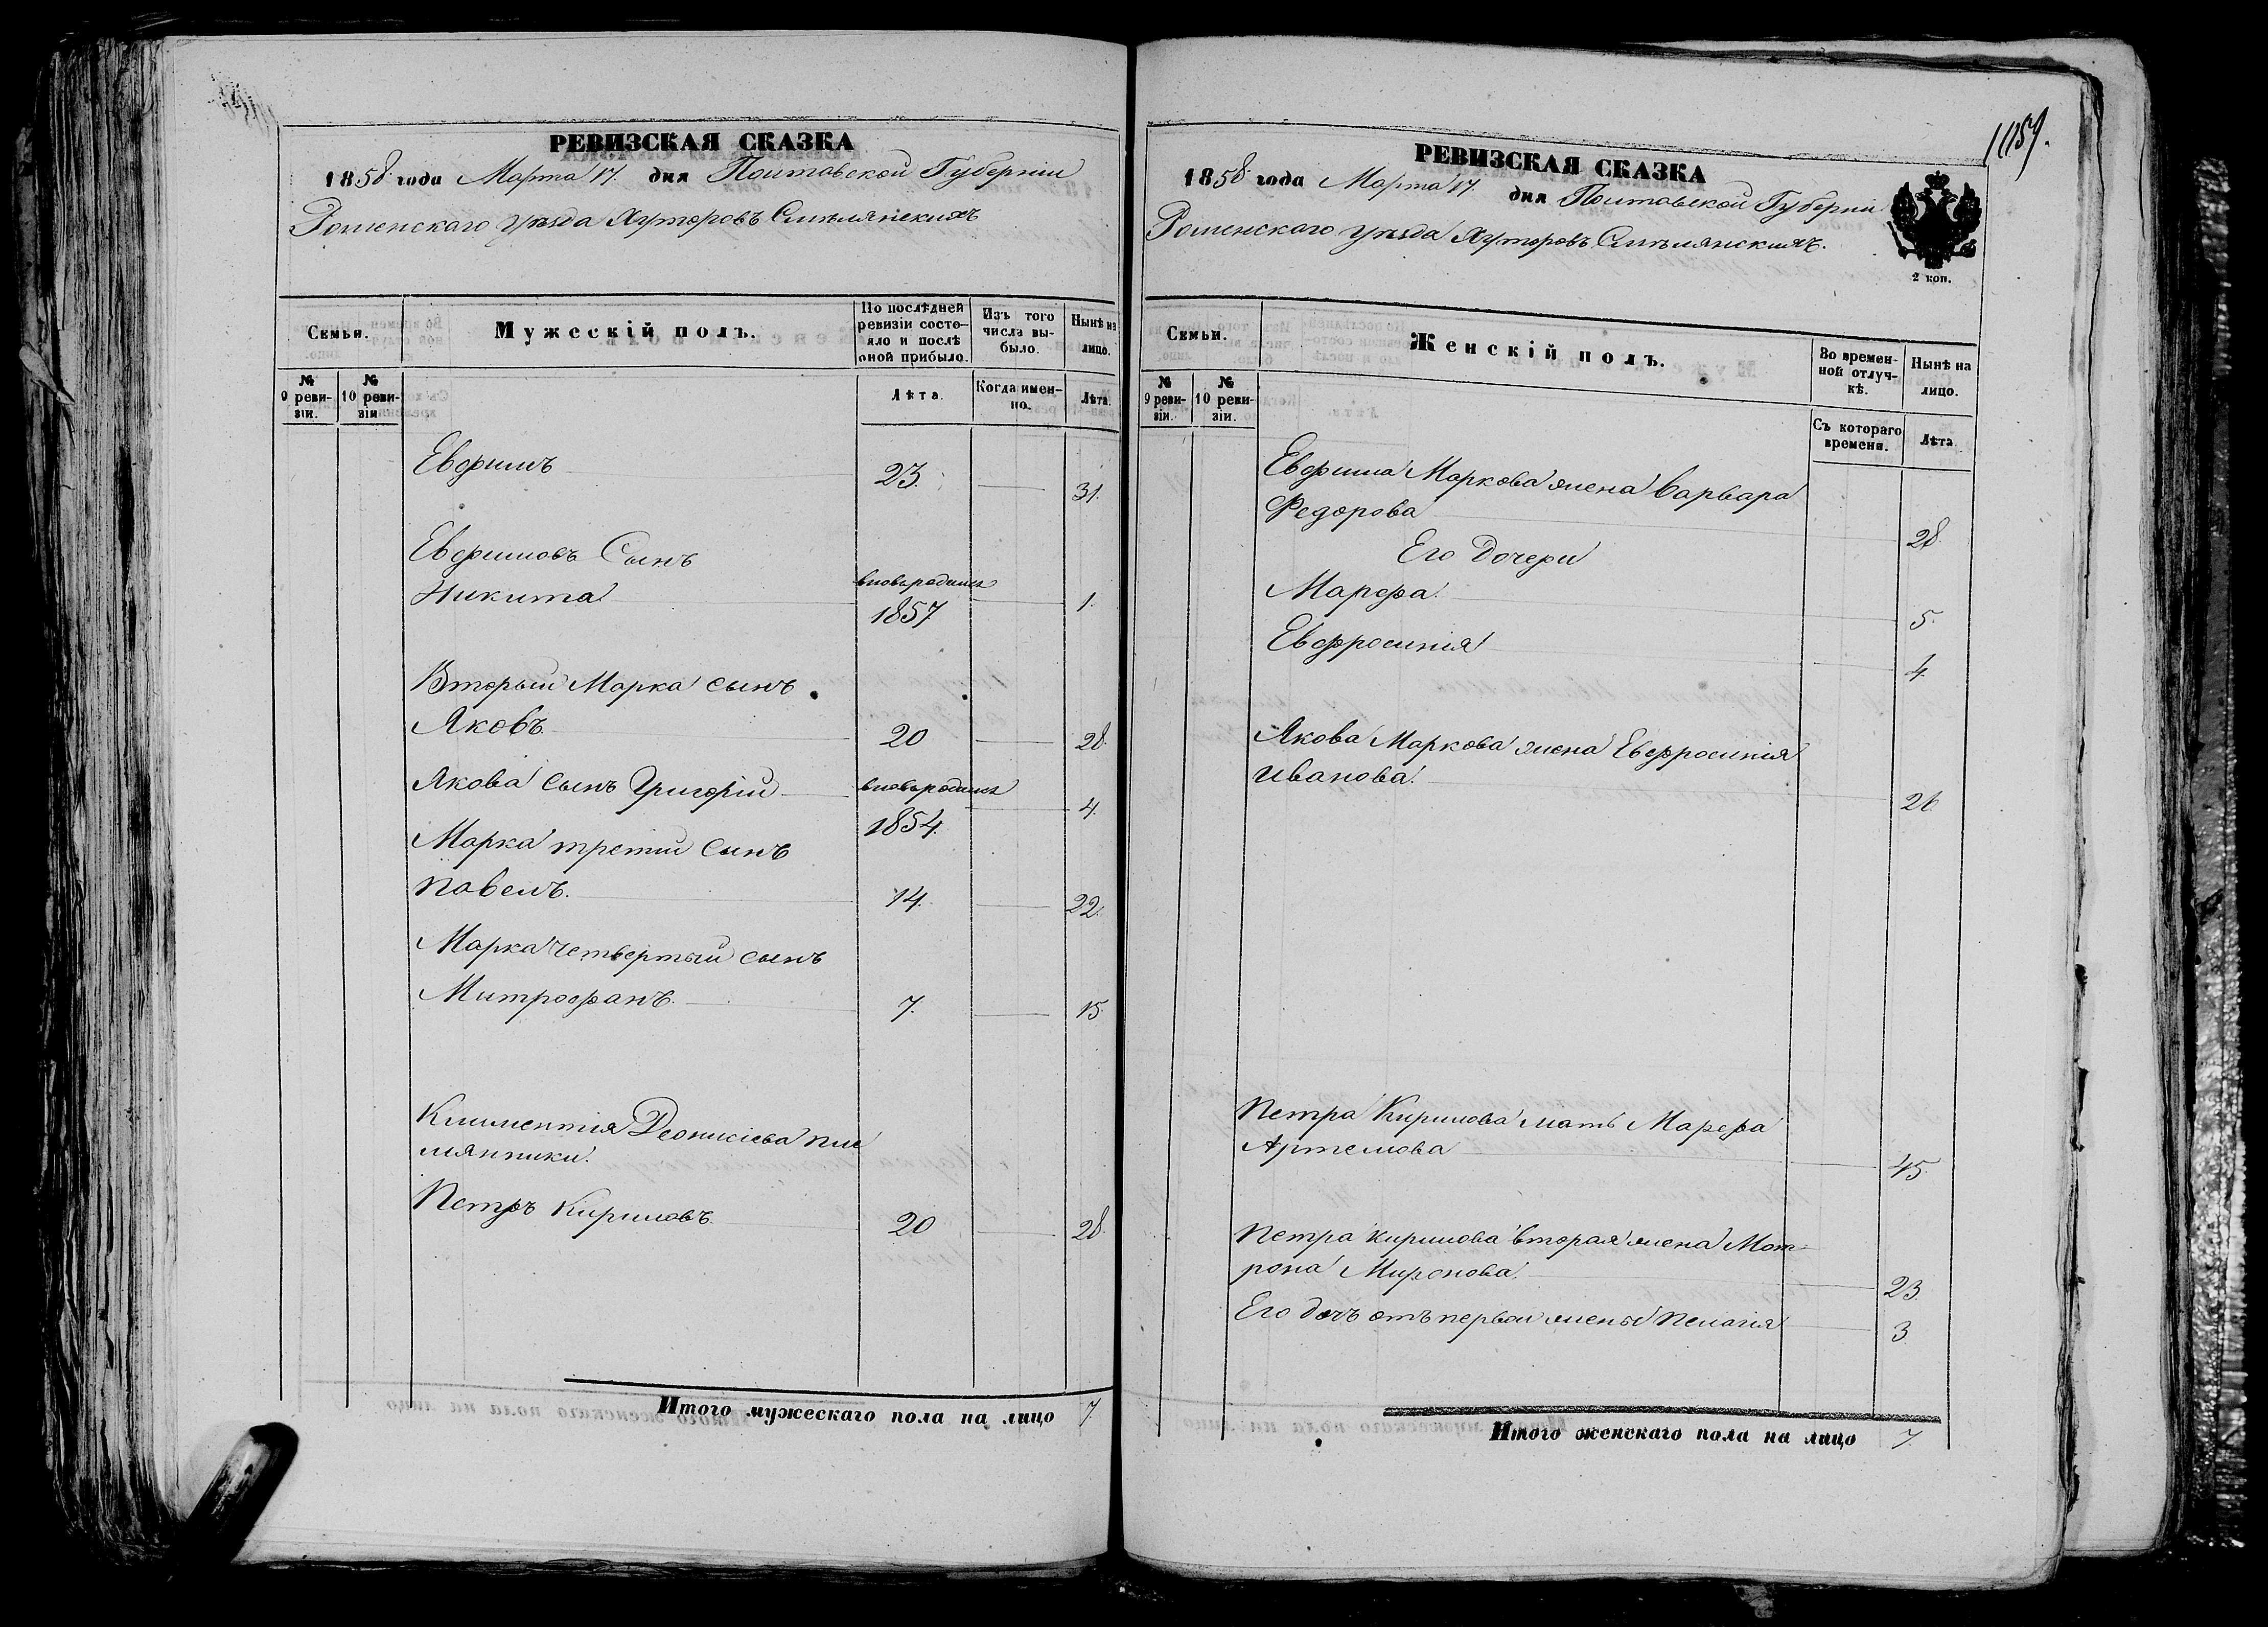 РЕВИЗСКАЯ СКАЗКА
1858 года Марта 17. дня Полтавской Губерніи
Роменскаго уѣзда Хуторовъ Смѣлянскихъ
Семьи.
Мужескій полъ.
По послѣдней ревизіи состояло и послѣ оной прибыло.
Изъ того числа выбыло.
Нынѣ на лицо.
№ 9 ревизіи.
№ 10 ревизіи
Лѣта.
Когда именно.
Лѣта.
Евфимъ 23. 31.
Евфимовъ Сынъ
Никита вновьродился 1857 1.
Вторый Марка сынъ
Яковъ. 20 28.
Якова сынъ Григорій вновьродился 1854. 4.
Марка третій сынъ
Павелъ. 14. 22.
Марка четвертый сынъ
Митрофанъ. 7. 15.
Климентія Деонисіева пле
мянники.
Петръ Кириловъ 20 28.
Итого мужескаго пола на лицо 7.
1159.
РЕВИЗСКАЯ СКАЗКА
1858 года Марта 17. дня Полтавской Губерніи
Роменскаго уѣзда Хуторовъ Смѣлянскихъ.
2 коп.
Семьи.
Женскій полъ.
Во временной отлучкѣ.
Нынѣ на лицо.
№ 9 ревизіи.
№ 10 ревизіи.
Съ котораго времени.
Лѣта
Евфима Маркова жена Варвара
Федорова 28.
Его Дочери
Марфа. 5.
Евфросинія 4.
Якова Маркова жена Евфросинія
Иванова. 26.
Петра Кирилова мать Марфа
Артемова 45.
Петра Кирилова вторая жена Мот-
рона Миронова. 23.
Его дочь отъ первой жены Пелагія 3
Итого женскаго пола на лицо 7.